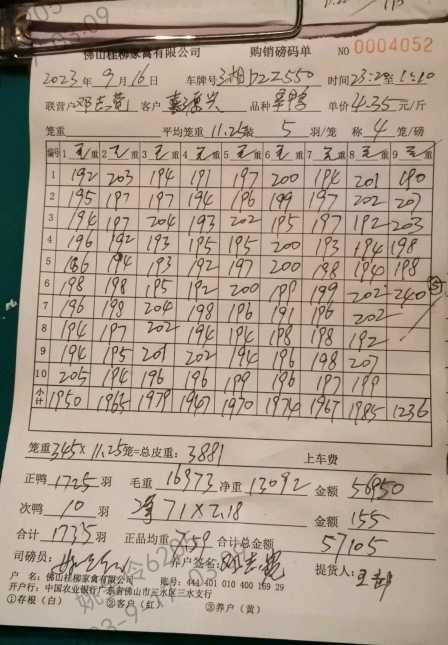 佛山桂柳家禽有限公司 购销磅码单 NO 0004052
2023年9月16日 车牌号 时间23:20至1:10
联营户 邓志 客户 品种 单价4.35元/斤
笼重 平均笼重 11.25 5羽/笼 称4笼/磅
编号 1毛重 2毛重 3毛重 4毛重 5毛重 6毛重 7毛重 8毛重 9毛重
1 192 203 194 191 197 200 194 201 190
2 195 197 197 194 196 199 197 202 207
3 194 197 204 193 202 195 197 192 203
4 196 192 193 195 195 200 193 194 198
5 186 194 193 192 197 200 198 190 198
6 198 198 195 192 200 199 199 202 240
7 196 198 204 198 196 191 196 202
8 194 197 202 194 194 198 198 192
9 194 195 201 202 194 196 198 207
10 205 194 196 196 199 196 197 199
小计 1950 1965 1979 1947 1970 1974 1967 1985 1236
笼重 345×11.25笼=总皮重:3881 上车费
正鸭1725羽 毛重16973 净重13092 金额56950
次鸭10羽 71×2.18 金额155
合计1735羽 正品均重7.59 合计总金额57105
司磅员: 养户签名: 提货人:
户 名:佛山桂柳家禽有限公司 账号:444 401 010 400 169 29
开户行:中国农业银行广东省佛山市三水区三水支行
①存根(白) ②客户(红) ③养户(黄)